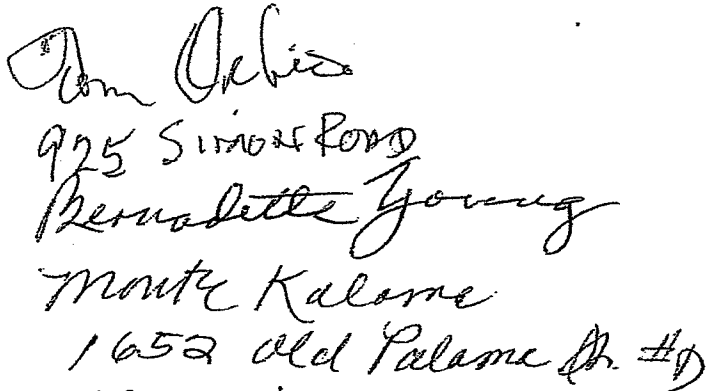 Tom
925 Simon Road
Bernadette Young
Monte Kalama
1652 Old Palama #D